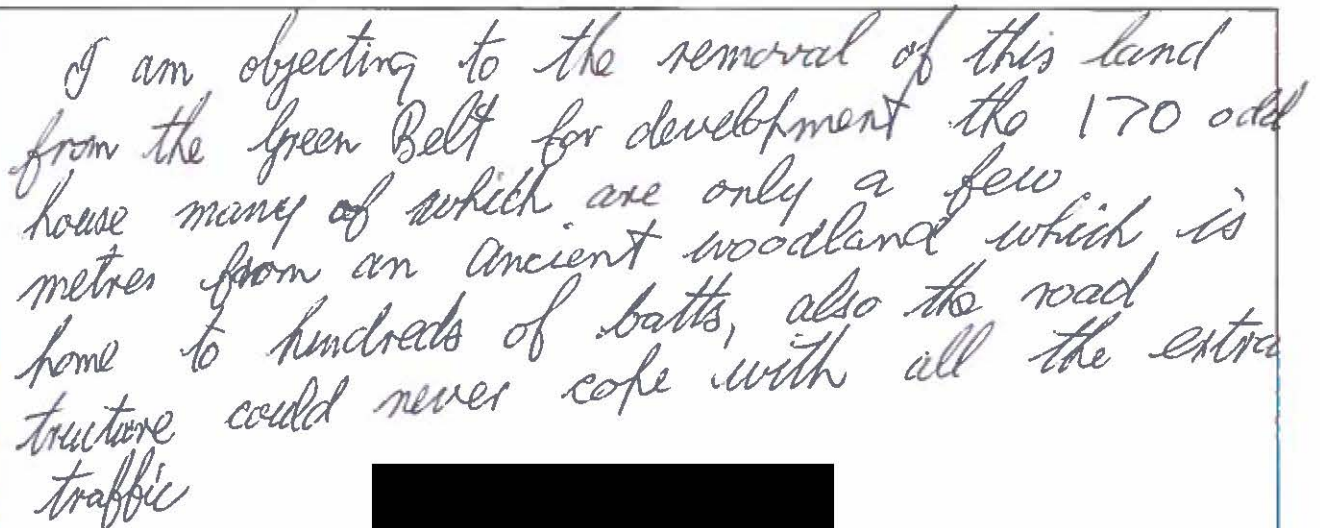 I am objecting to the removal of this land
from the Green Belt for development the 170 odd
house many of which are only a few
metres from an ancient woodland which is
home to hundreds of batts, also the road
tructure could never cope with all the extra
traffic